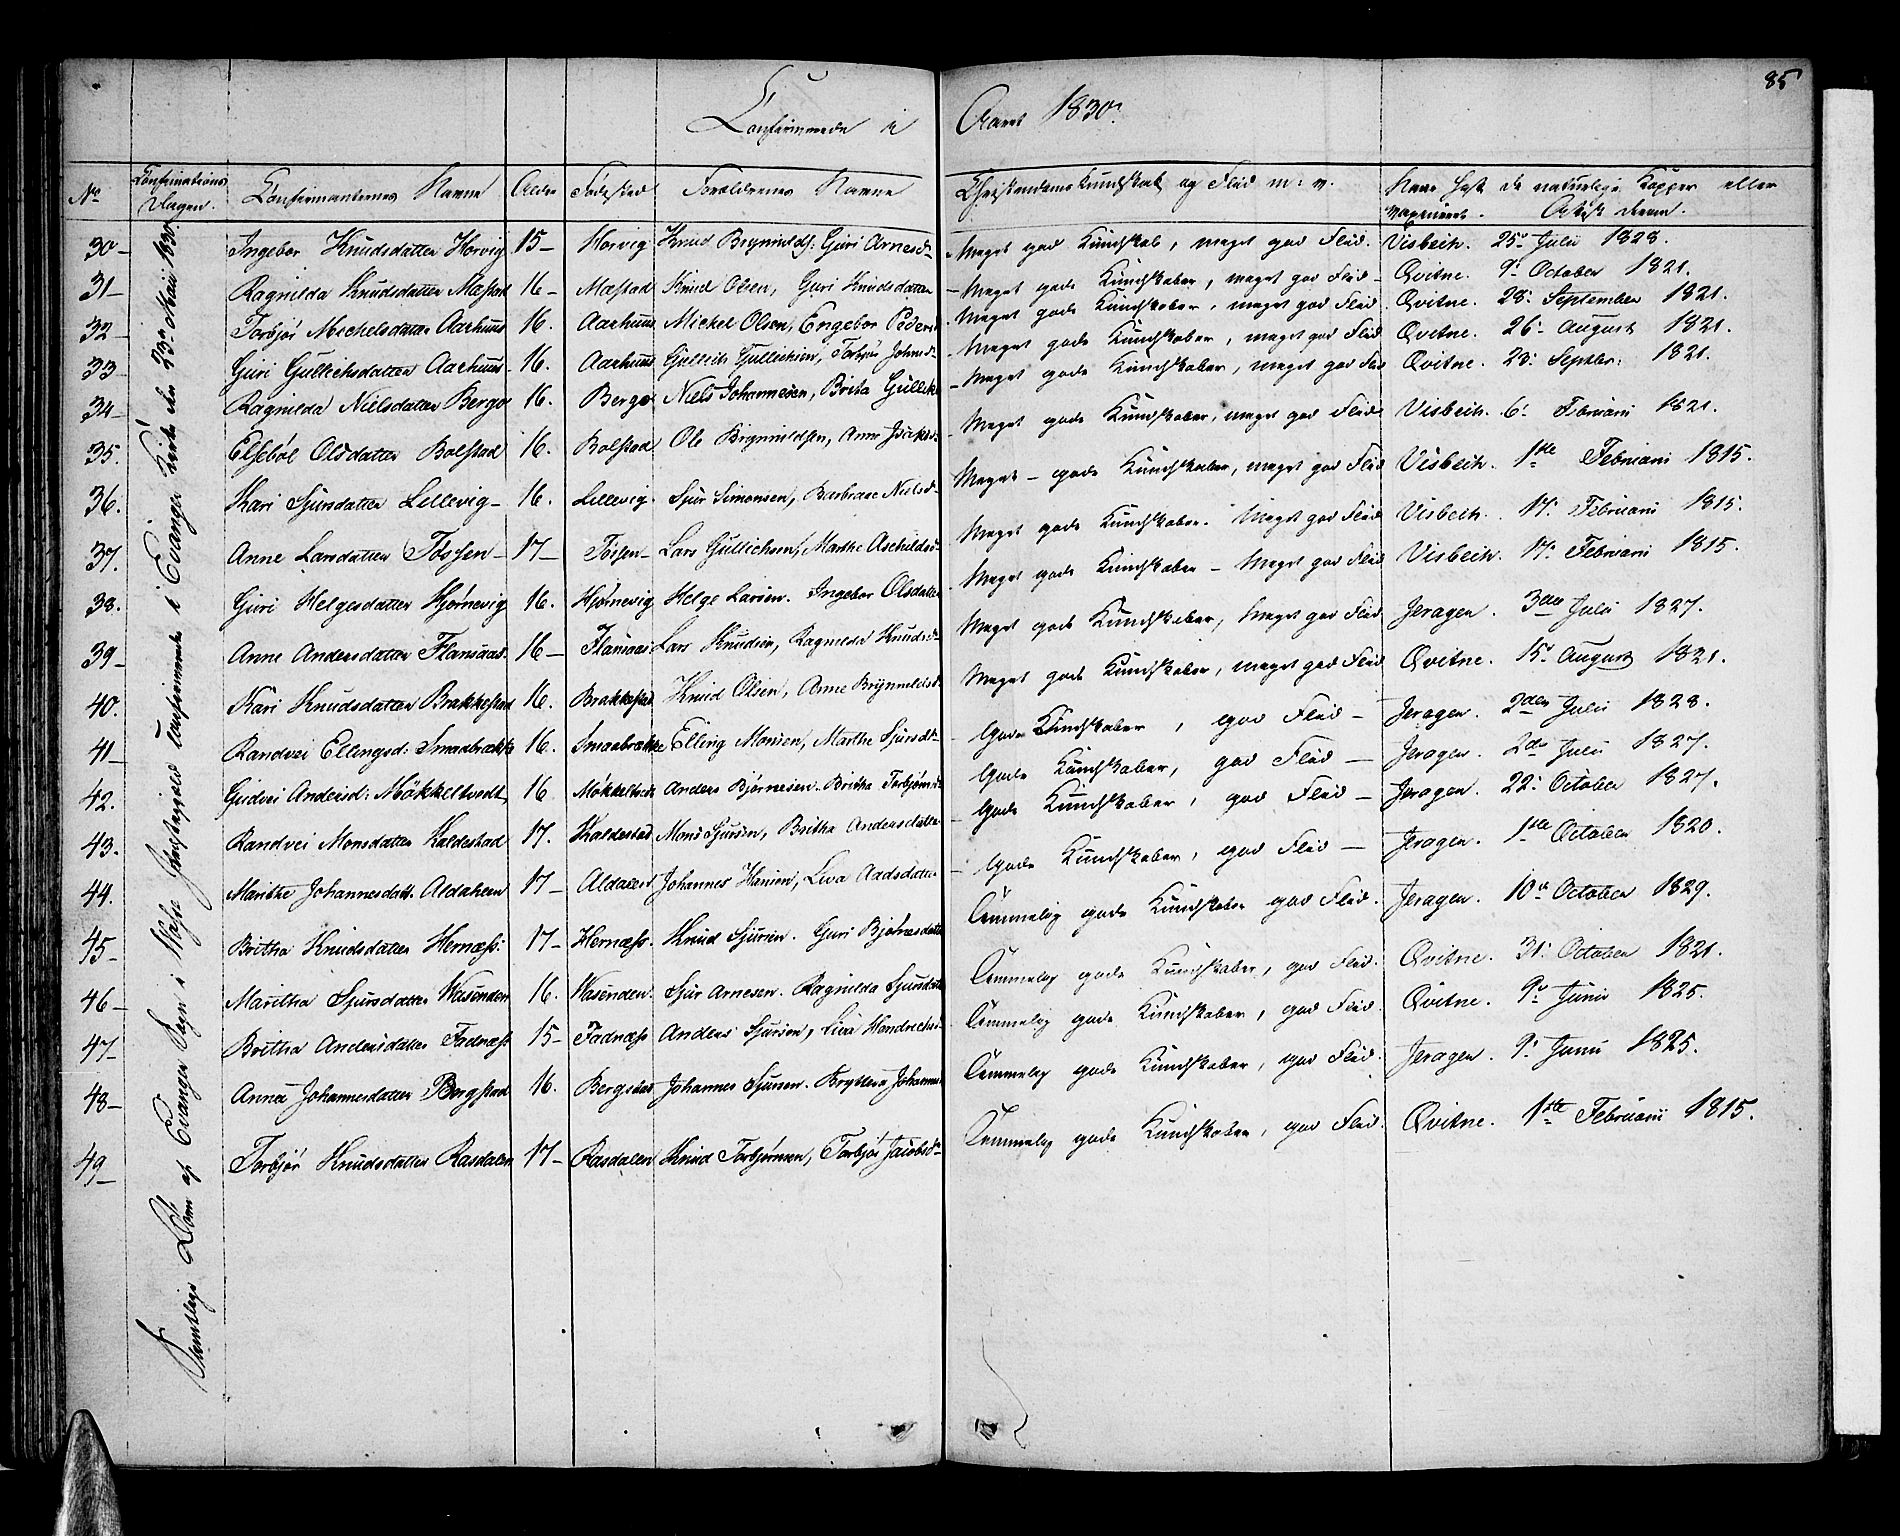 85
Confirmerede i Aaret 1830.
No Confirmations Dagen. Confirmanternes Navne Alder Fødested Forældrenes Navne Christendoms Kundskab og Fliid m: v. Have havt de naturlige Kopper eller
vaxineret. Attest derom.
Qvindelige Kiøn af Evanger Sogn i Præstegjeld confirmerede i Evanger Kirke den 23de Mai 1830
30- Ingebor Knudsdatter Horvig 15- Horvig Knud Brynnilds: Guri Arnesd- Meget god Kundskab, meget god Fliid. Visbech. 25de Julii 1828.
31- Ragnilda Knudsdatter Mæstad 16- Mæstad Knud Olsen, Guri Knudsdatter - Meget gode Kundskaber, meget god Fliid- Qvitne. 9de October 1821.
32- Torbjør Michelsdatter Aarhuus 16. Aarhuus Michel Olsen, Engebor Peders - Meget gode Kundskaber, meget god Fliid. Qvitne. 28: September 1821.
33- Guri Gullichsdatter Aarhuus- 16. Aarhuus Gullich Gullichsen, Torbjør Johnsd- - Meget gode Kundskaber, meget god Fliid Qvitne. 26: August 1821.
34- Ragnilda Nielsdatter Berge 16. Berge Niels Johannesen, Brita Gulliks - Meget gode Kundskaber, meget god Flid Qvitne. 23: Septbr: 1821.
35. Elsebøl Olsdatter Bolstad 16. Bolstad Ole Brynnildsen, Anne - Meget gode Kundskaber, meget god Fliid Visbech. 6: Februari 1821.
36. Kari Sjursdatter Lillevig- 16. Lillevig. Sjur Simonsen, Barbrae Nielsd- Meget- gode Kundskaber, meget god Fliid Visbech. 1ste Februarii 1815.
37. Anne Larsdatter Tøssen- 17- Tøssen- Lars Gullichsen, Marthe Aschildsd: Meget gode Kundskaber. Meget god Fliid Visbech. 17: Februarii 1815.
38. Guri Helgesdatter Hjørnevig 16. Hjørnevig Helge Larsen. Ingebor Olsdatter - Meget gode Kundskaber- Meget god Fliid Visbech. 17: Februarii 1815.
39- Anne Andersdatter Flansaas. 16- Flansaas Lars Knudsen, Ragnilda Knudsd- Meget gode Kundskaber, Meget god Fliid Jeragen. 3die Julii 1827.
40. Kari Knudsdatter Brakkestad 16. Brakkestad Knud Olsen, Anne Brynnildsd. Meget gode Kundskaber, meget god Fliid Qvitne. 15: August 1821.
41- Randvei Ellingsd: Smaabrække 16. Smaabrække Elling Monsen, Marthe Sjursd- - Gode Kundskaber, god Fliid- Jeragen. 2den Julii 1828.
42. Gudvei Andersd: Møkkeltvedt 16 Møkkeltvedt Anders Bjørnesen. Britha Torbjørnsd - Gode Kundskaber, god Fliid- Jeragen. 2de Julii 1827.
43. Randvei Monsdatter Kaldestad 17. Kaldestad Mons Sjursen, Britha Andersdatter - Gode Kundskaber, god Fliid- Jeragen. 22: October 1827.
44. Marithe Johannesdatt. Aldaheim 17- Johannes Hansen, Liva Aadsdatter - Gode Kundskaber, god Fliid- Jeragen. 1ste October 1820.
45- Britha Knudsdatter Hernæss: 17- Hernæss. Knud Sjursen. Guri Bjørnesdatter Temmelig gode Kundskaber god Fliid. Jeragen. 10de October 1829.
46- Maritha Sjursdatter Wasenden 16. Wasenden. Sjur Arnesen. Ragnilda Sjursdatter Temmelig gode Kundskaber, god Fliid. Qvitne. 31: October 1821.
47- Britha Andersdatter Fadnæss 15- Fadnæss Anders Sjursen, Liva Hendrechsd: Temmelig gode Kundskaber, god Fliid. Qvitne. 9de Junii 1825.
48- Anna Johannesdatter Bergstad 16. Bergstad Johannes Sjursen. Johannes Temmelig gode Kundskaber, god Fliid. Jeragen. 9: Junii 1825.
49- Torbjør Knudsdatter Rasdalen 17- Rasdalen Knud Torbjørnsen, Torbjør Jacobsd- Temmelig gode Kundskaber, god Fliid. Qvitne. 1ste Februarii 1815.